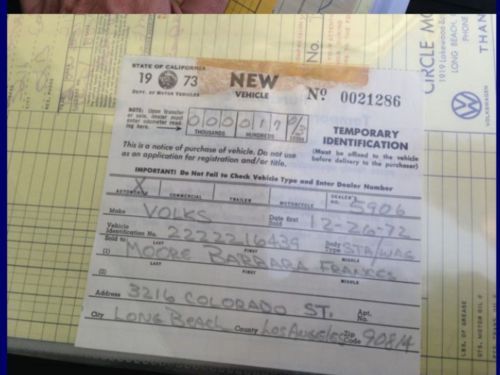 CIRCLE MO
1919 Lakewood B
LONG BEACH,
PHONE
VOLKSWAGEN
No.
STATE OF CALIFORNIA
19 73
DEPT. OF MOTOR VEHICLES
NEW
VEHICLE
No 0021286
NOTE: Upon transfer
or sale, dealer must
enter odometer reading here
000017
THOUSANDS HUNDREDS
TEMPORARY
IDENTIFICATION
(Must be affixed to the vehicle
before delivery to the purchaser)
This is a notice of purchase of vehicle. Do not use
as an application for registration and/or title.
IMPORTANT! Do Not Fail to Check Vehicle Type and Enter Dealer Number
X
AUTOMOBILE COMMERCIAL TRAILER MOTORCYCLE DEALER'S NO. 5906
Make VOLKS Date Sold 12-26-72
Vehicle Identification No. 2222216439 Body Type STA/WAG
Sold to LAST FIRST MIDDLE
(1) MOORE BARBARA FRANCES
LAST FIRST MIDDLE
(2)
Address 3216 COLORADO ST. Apt. No.
City LONG BEACH County LOS ANGELES Zip Code 90814
LBS. OF GREASE
QTS. MOTOR OIL